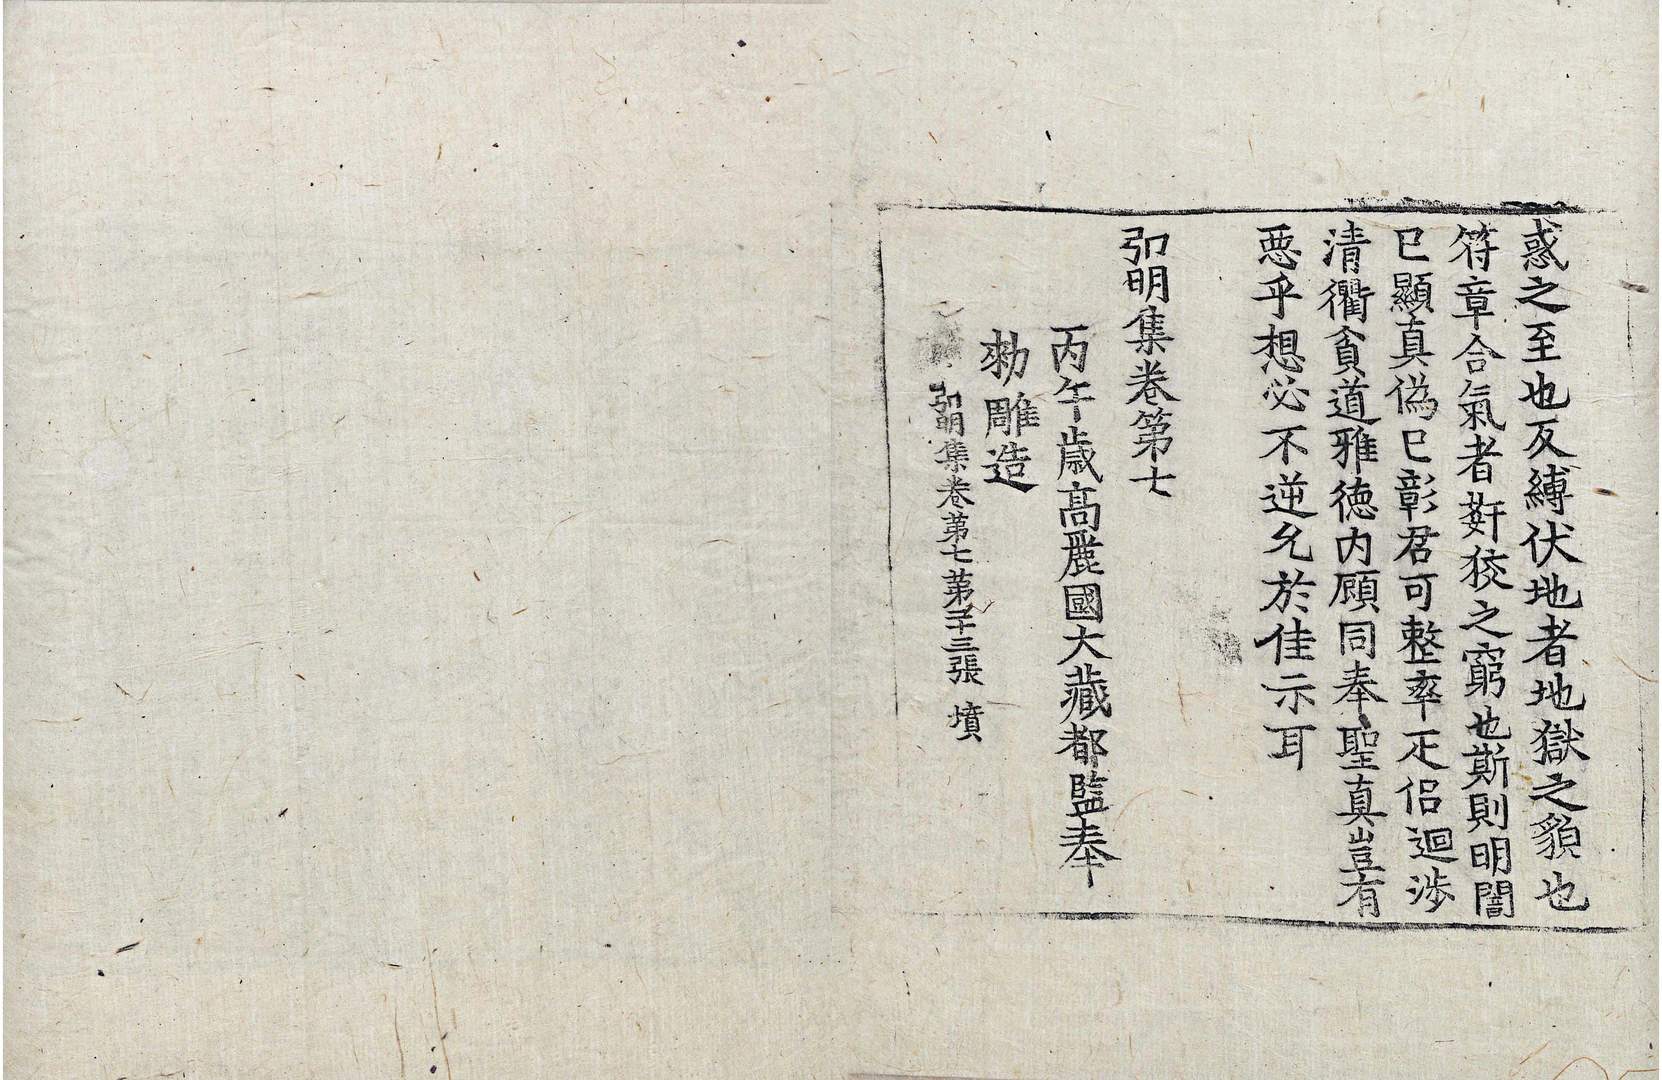 惑之至也反縛伏地者地獄之貌也
符章合氣者姧狡之窮也斯則明闇
已顯真偽已彰君可整率疋侣迴涉
清衢貧道雅德内顧同奉聖真豈有
惡乎想必不逆允於佳示耳
弘明集卷第七
丙午歳高麗國大藏都監奉
勑雕造
弘明集卷第七 第二十三張 墳